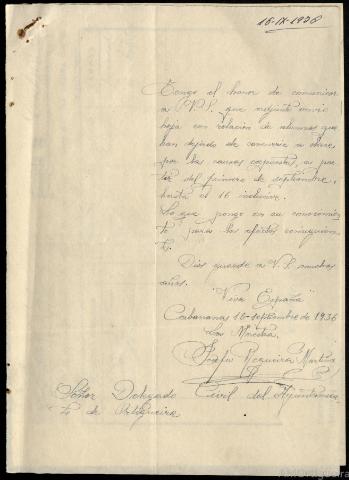 16-IX-1936
Tengo el honor de comunicar
a V.S. que adjunto envio
hoja con relación de alumnos que
han dejado de concurrir a clase
por las causas expuestas, a par
tir del primero de septiembre,
hasta el 16 inclusive.
Lo que pongo en su conocimien
to para los efectos consiguien
tes.
Dios guarde a V.S. muchos
años.
"Viva España"
Cabanas 16-septiembre de 1936
La Maestra
Josefa Regueira Martínez
Señor Delegado Civil del Ayuntamien
to de Ortigueira